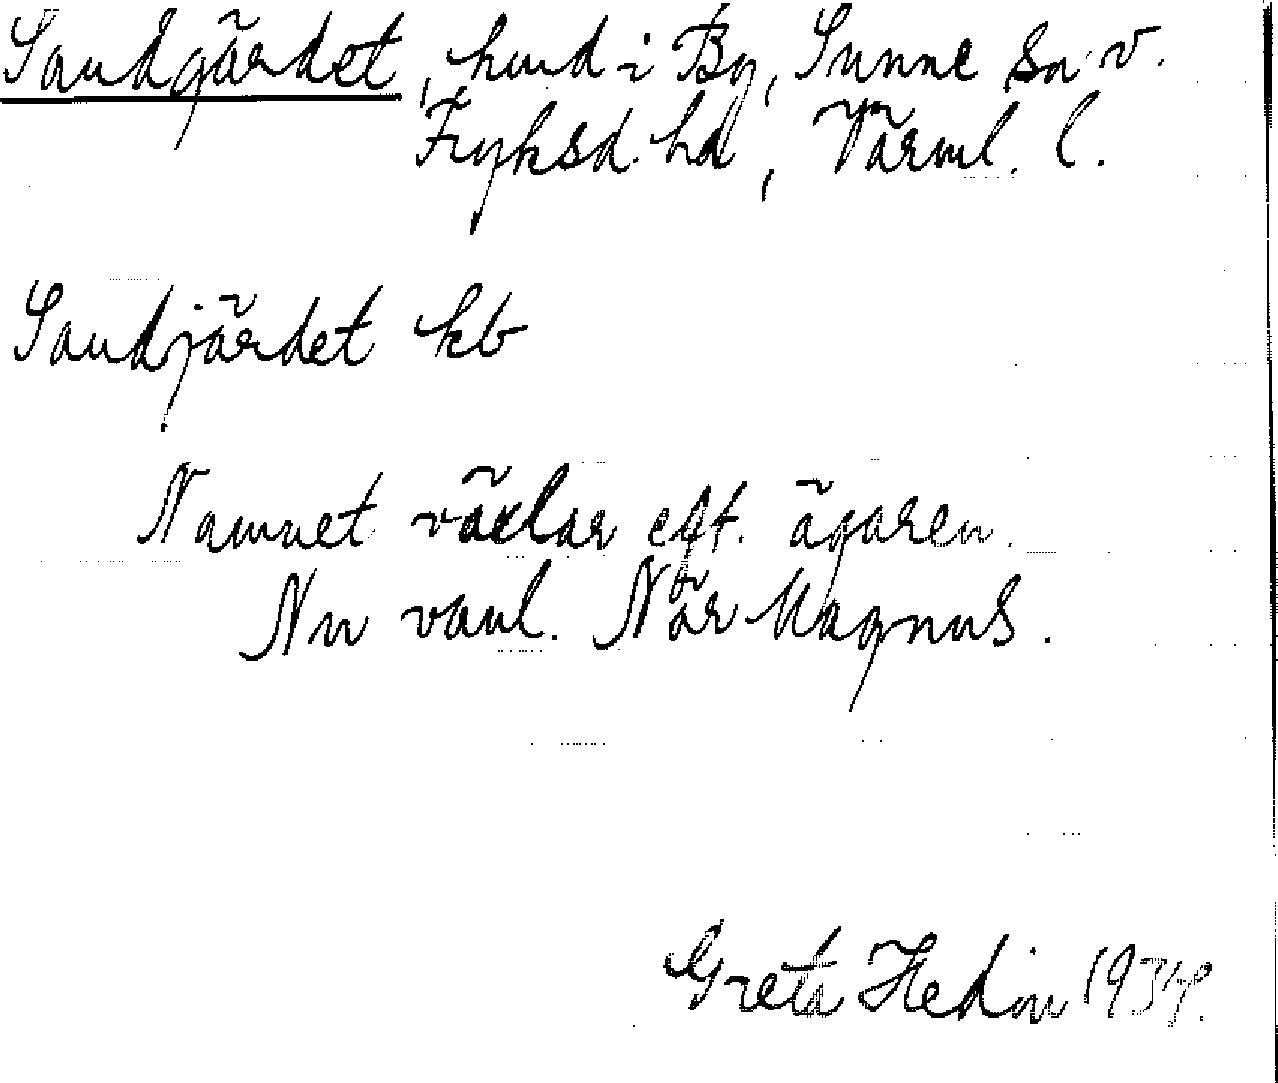 Sandgärdet, hmd i By, Sunne sn v.
Fryksd. hd, Värml. l.
Sandjärdet kb
Namnet växlar eft. ägaren.
Nu vanl. När Magnus.
Greta Hedin 1934.